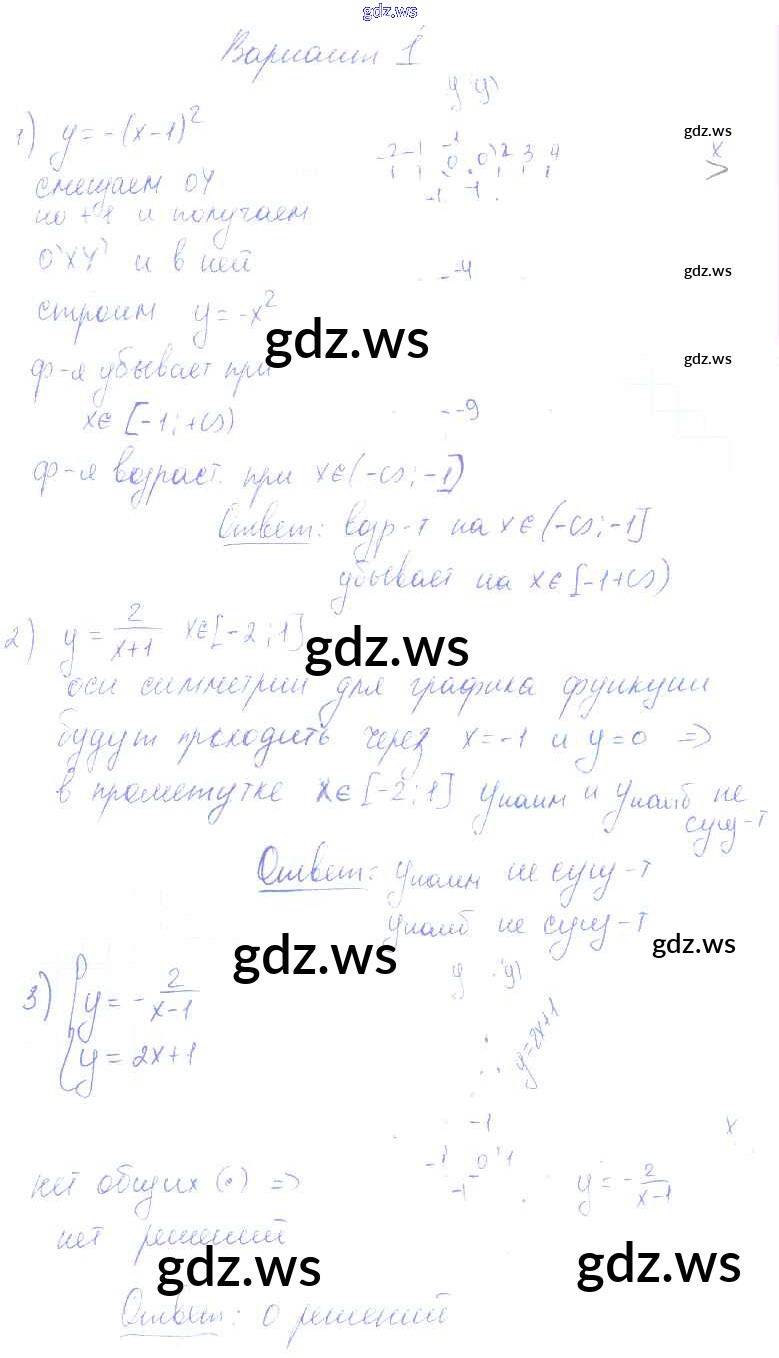 gdz.ws
Вариант 1
y y'
1) y = -(x-1)²
gdz.ws
-2 -1 0 0' 2 3 4 x
смещаем OY
-1 -1
по +1 и получаем
O'XY' и в ней
-4
gdz.ws
строим y = -x²
gdz.ws
gdz.ws
ф-я убывает при
x∈ [-1; +∞)
-9
ф-я возраст. при x∈(-∞; -1]
Ответ: возр-т на x∈(-∞; -1]
убывает на x∈[-1+∞)
2) y = 2/(x+1) x∈[-2; 1]
gdz.ws
оси симметрии для графика функции
будут проходить через x=-1 и y=0 ⇒
в прометутке x∈[-2; 1] yнаим и yнаиб не
сущ-т
Ответ: yнаим не сущ-т
yнаиб не сущ-т
gdz.ws
gdz.ws
y y'
3) { y = -2/(x-1)
y = 2x+1
y=2x+1
-1
x
-1 0 1
-1
y = -2/(x-1)
нет общих (•) ⇒
нет решений
gdz.ws
gdz.ws
Ответ: 0 решений